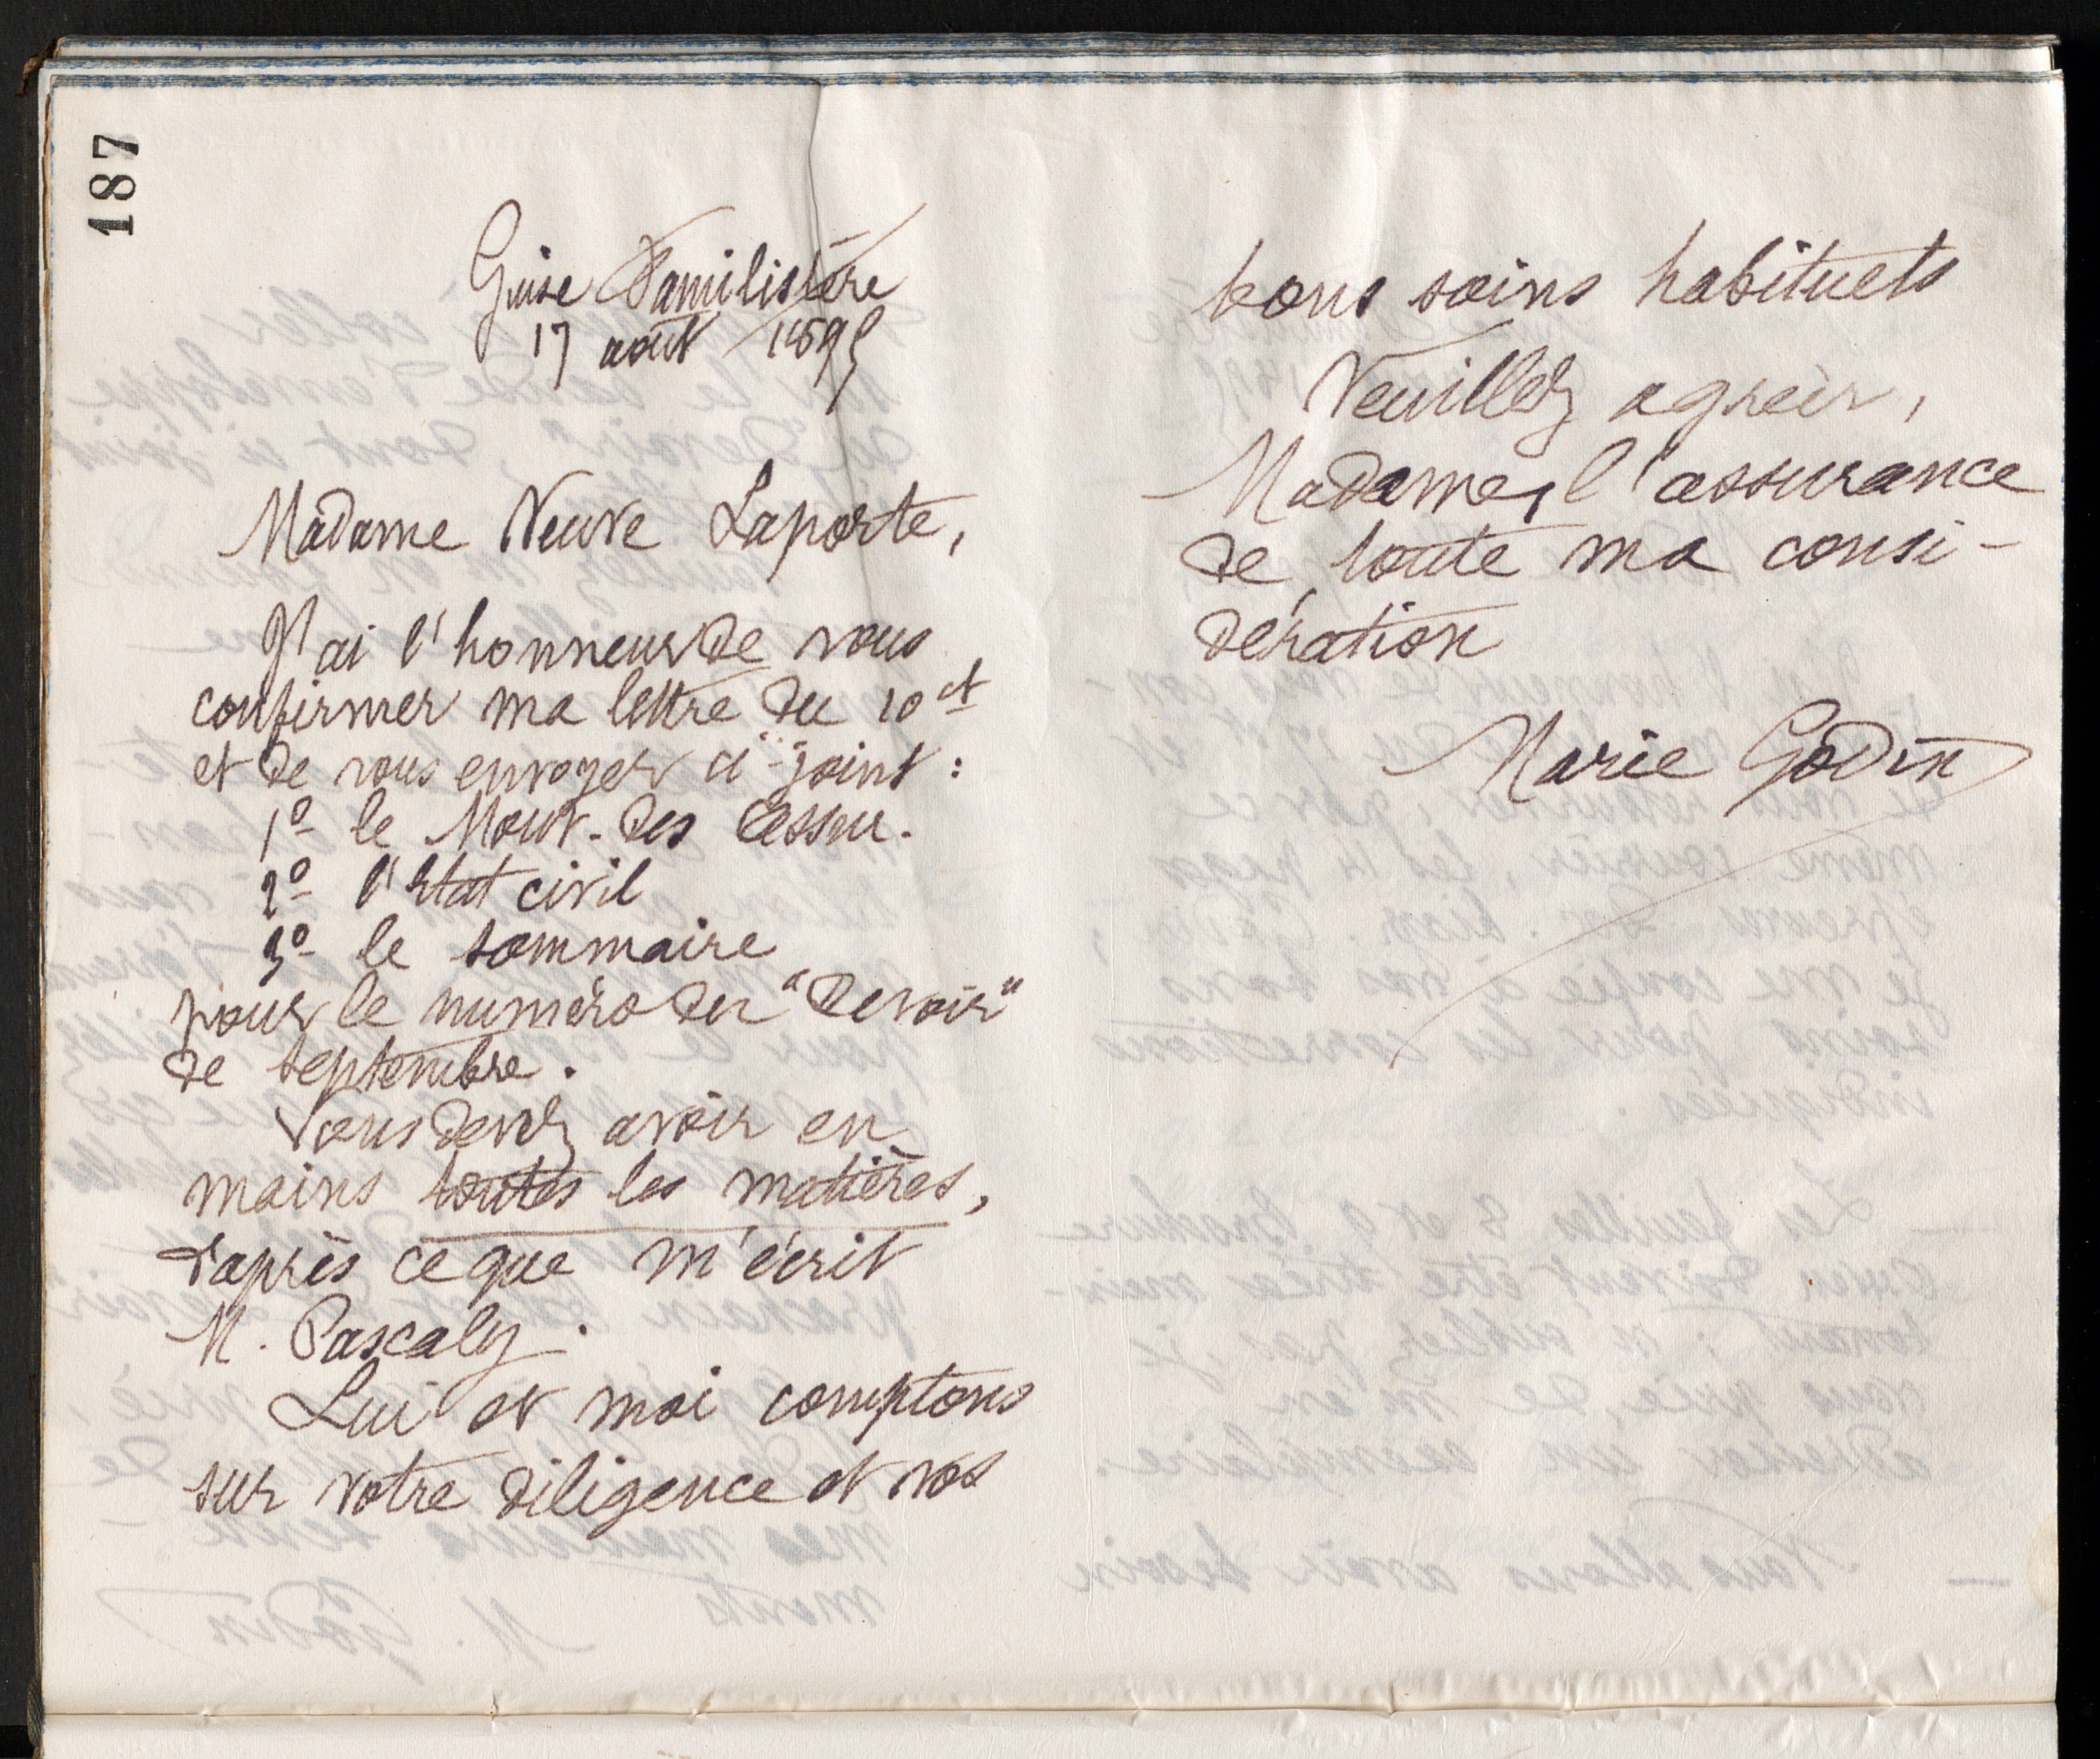 187
Guise Familistère
17 août 1895
Madame Veuve Laporte,
J'ai l'honneur de vous
confirmer ma lettre du 10 ct
et de vous envoyer ci-joint :
1º le Mouv. des assu.
2º l'état civil
3º le sommaire
pour le numéro du "Devoir"
de septembre.
Vous devez avoir en
mains toutes les matières,
d'après ce que m'écrit
M. Pascaly.
Lui et moi comptons
sur votre diligence et vos
bons soins habituels
Veuillez agréer,
Madame, l'assurance
de toute ma consi-
dération
Marie Godin